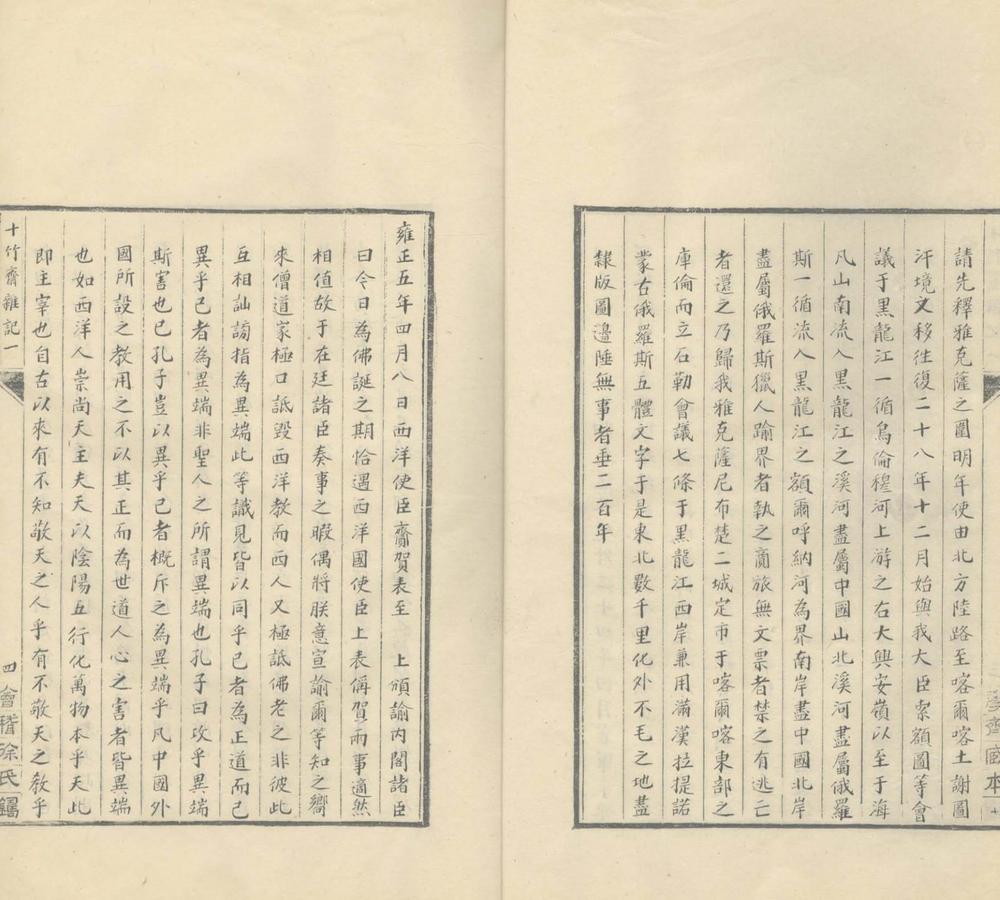 請先釋雅克薩之圍明年使由北方陸路至喀爾喀土謝圖
汗境文移往復二十八年十二月始與我大臣索額圖等會
議于黑龍江一循烏倫穆河上游之石大興安嶺以至于海
凡山南流入黑龍江之溪河盡屬中國山北溪河盡屬俄羅
斯一循流入黑龍江之額爾呼納河為界南岸盡中國北岸
盡屬俄羅斯獵人踰界者執之商旅無文票者禁之有逃亡
者還之乃歸我雅克薩尼布楚二城定市于喀爾喀東部之
庫倫而立石勒會議七條于黑龍江西岸兼用滿漢拉提諾
蒙古俄羅斯五體文字于是東北數千里化外不毛之地盡
隸版圖邊陲無事者垂二百年
雍正五年四月八日西洋使臣齎賀表至 上頒諭內閣諸臣
曰今日為佛誕之期恰遇西洋國使臣上表偁賀兩事適然
相值故于在廷諸臣奏事之暇偶將朕意宣諭爾等知之嚮
來僧道家極口詆毀西洋教而西人又極詆佛老之非彼此
互相訕謗指為異端此等識見皆以同乎己者為正道而己
異乎己者為異端非聖人之所謂異端也孔子曰攻乎異端
斯害也已孔子豈以異乎己者概斥之為異端乎凡中國外
國所設之教用之不以其正而為世道人心之害者皆異端
也如西洋人崇尚天主夫天以陰陽五行化萬物本乎天此
即主宰也自古以來有不知敬天之人乎有不敬天之教乎
十竹齋雜記一
四 會稽徐氏鑄